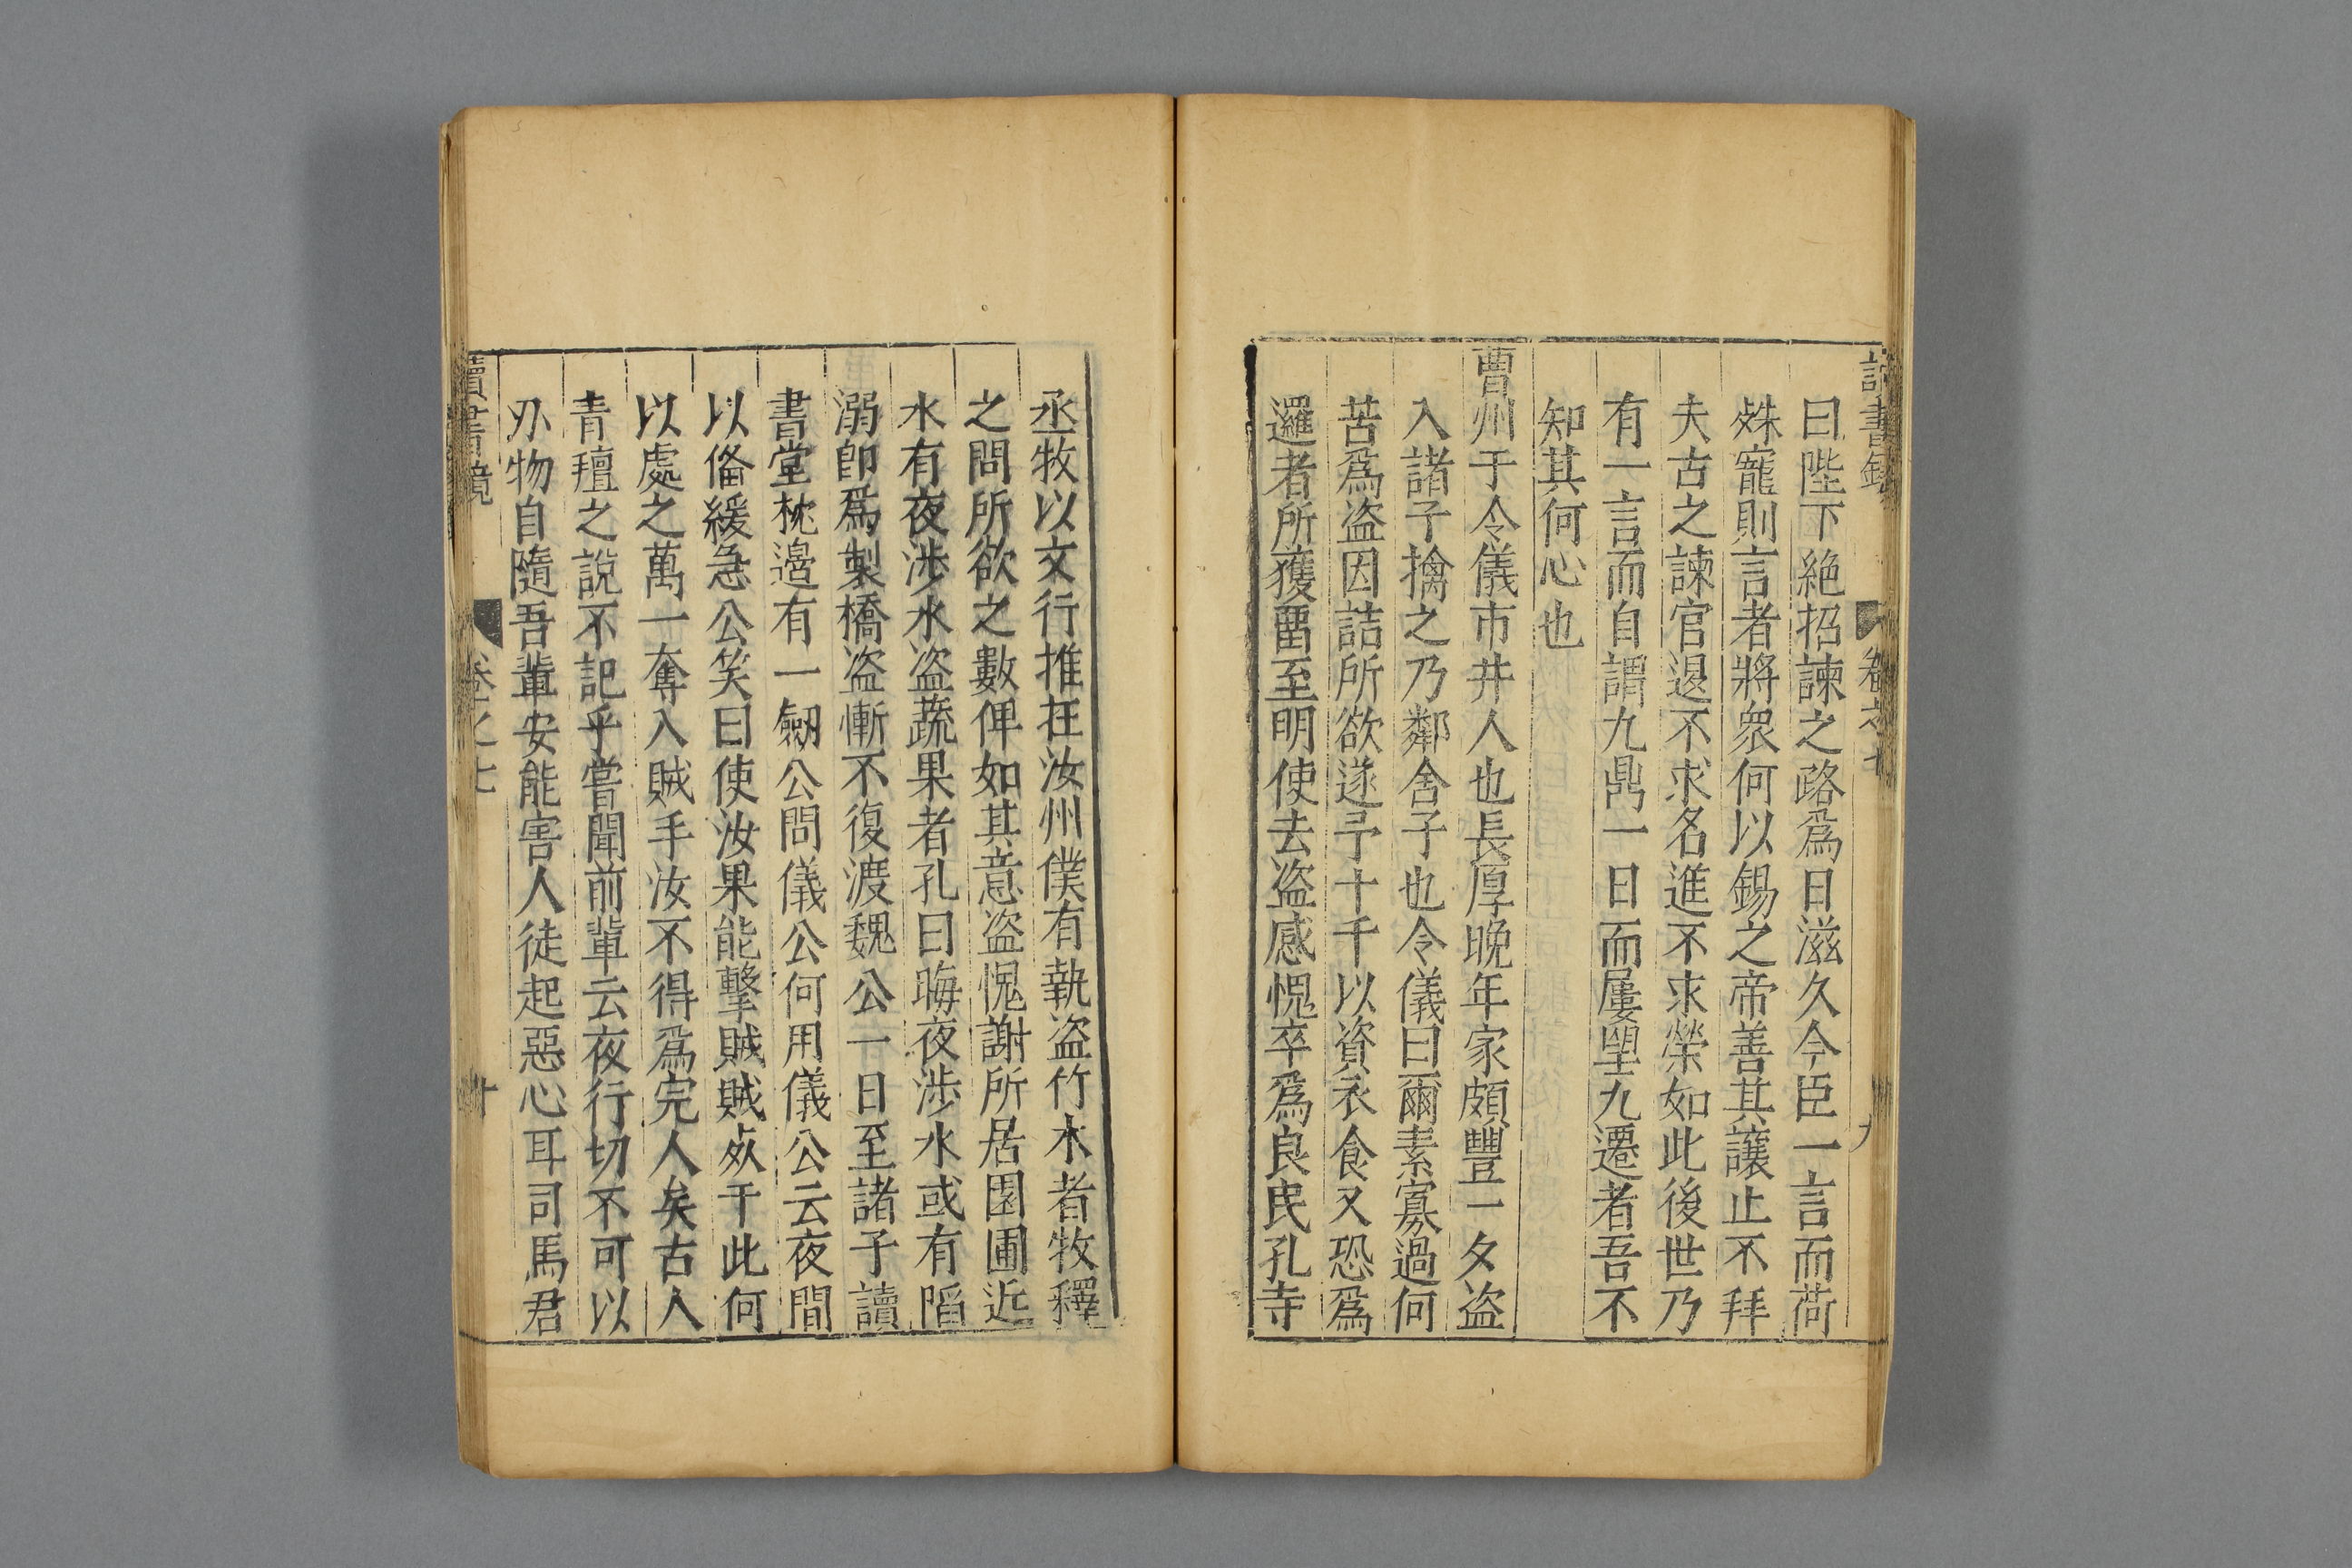 讀書鏡 卷之七 九
曰陛下絕招諫之路爲日滋久今臣一言而荷
殊寵則言者將衆何以錫之帝善其讓止不拜
夫古之諫官退不求名進不求榮如此後世乃
有一言而自謂九鼎一日而屢望九遷者吾不
知其何心也
曹州于令儀市井人也長厚晚年家頗豐一夕盗
入諸子擒之乃鄰舍子也令儀曰爾素寡過何
苦爲盗因詰所欲遂予十千以資衣食又恐爲
邏者所獲畱至明使去盗感愧卒爲良民孔寺
丞牧以文行推在汝州僕有執盗竹木者牧釋
之問所欲之數俾如其意盗愧謝所居園圃近
水有夜涉水盗蔬果者孔曰晦夜涉水或有陷
溺卽爲製橋盗慚不復渡魏公一日至諸子讀
書堂枕邊有一劒公問儀公何用儀公云夜間
以偹緩急公笑曰使汝果能擊賊賊死于此何
以處之萬一奪入賊手汝不得爲完人矣古人
青氊之說不記乎嘗聞前輩云夜行切不可以
刅物自隨吾輩安能害人徒起惡心耳司馬君
讀書鏡 卷之七 十